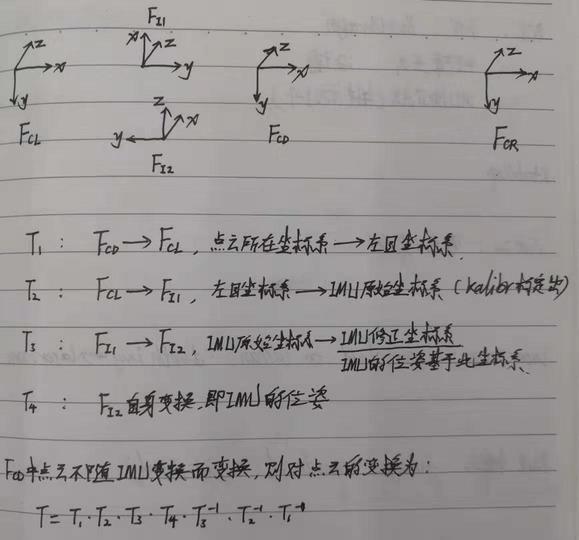 F_I1
z x x z z z
x y x x
y z x y y
F_CL y F_CD F_CR
F_I2
T₁ : F_CD → F_CL, 点云所在坐标系 → 左目坐标系.
T₂ : F_CL → F_I1, 左目坐标系 → IMU原始坐标系 (kalibr标定出)
T₃ : F_I1 → F_I2, IMU原始坐标系 → IMU修正坐标系
IMU的位姿基于此坐标系.
T₄ : F_I2自身变换, 即IMU的位姿
F_CD中点云不随IMU变换而变换, 则对点云的变换为:
T = T₁·T₂·T₃·T₄·T₃⁻¹·T₂⁻¹·T₁⁻¹